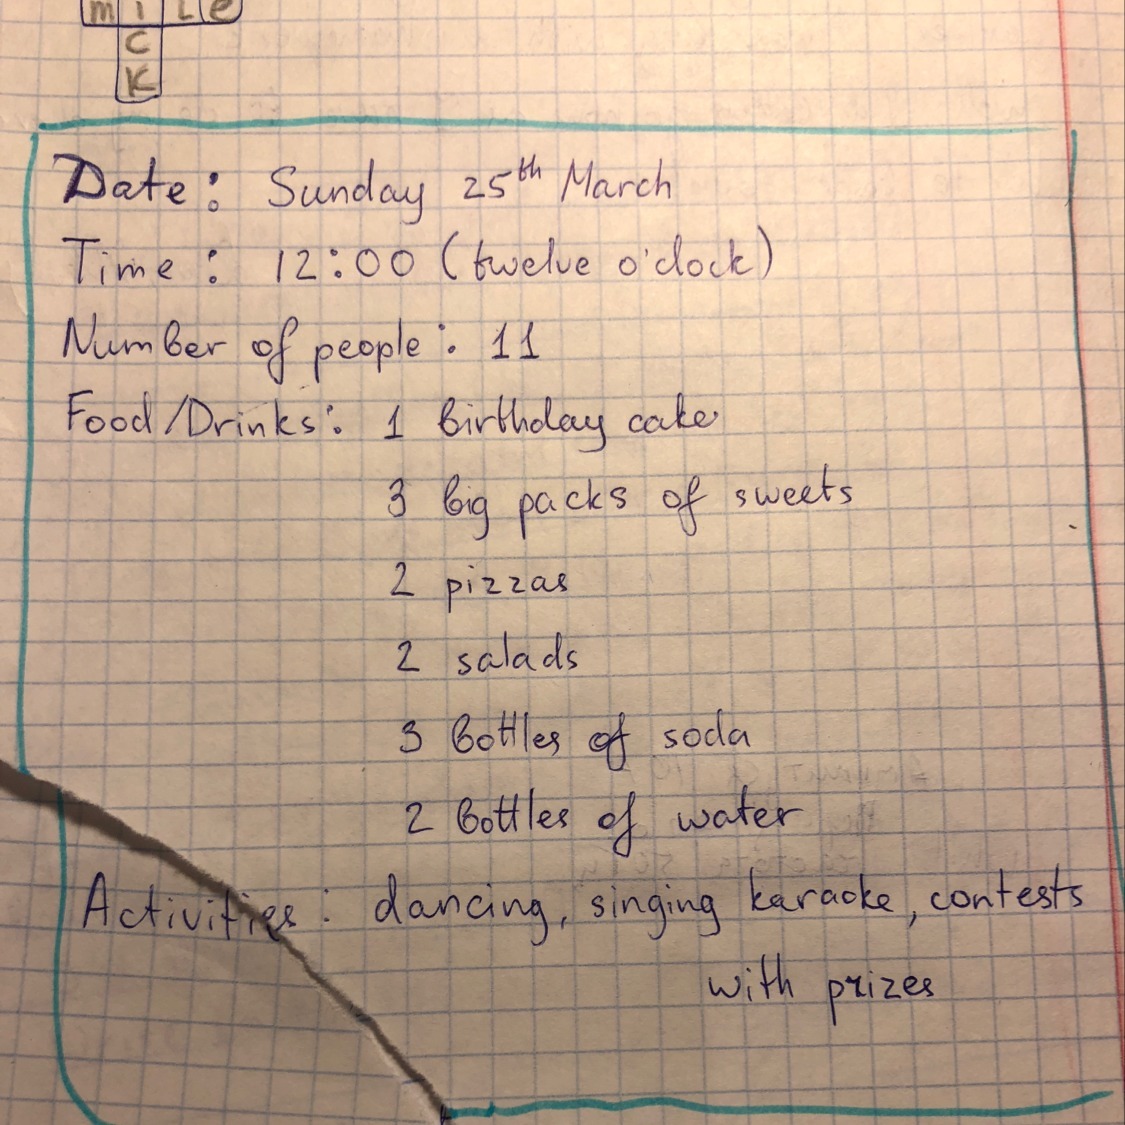 mile
C
K
Date: Sunday 25th March
Time: 12:00 (twelve o'clock)
Number of people: 11
Food/Drinks: 1 birthday cake
3 big packs of sweets
2 pizzas
2 salads
3 bottles of soda
2 bottles of water
Activities: dancing, singing karaoke, contests
with prizes